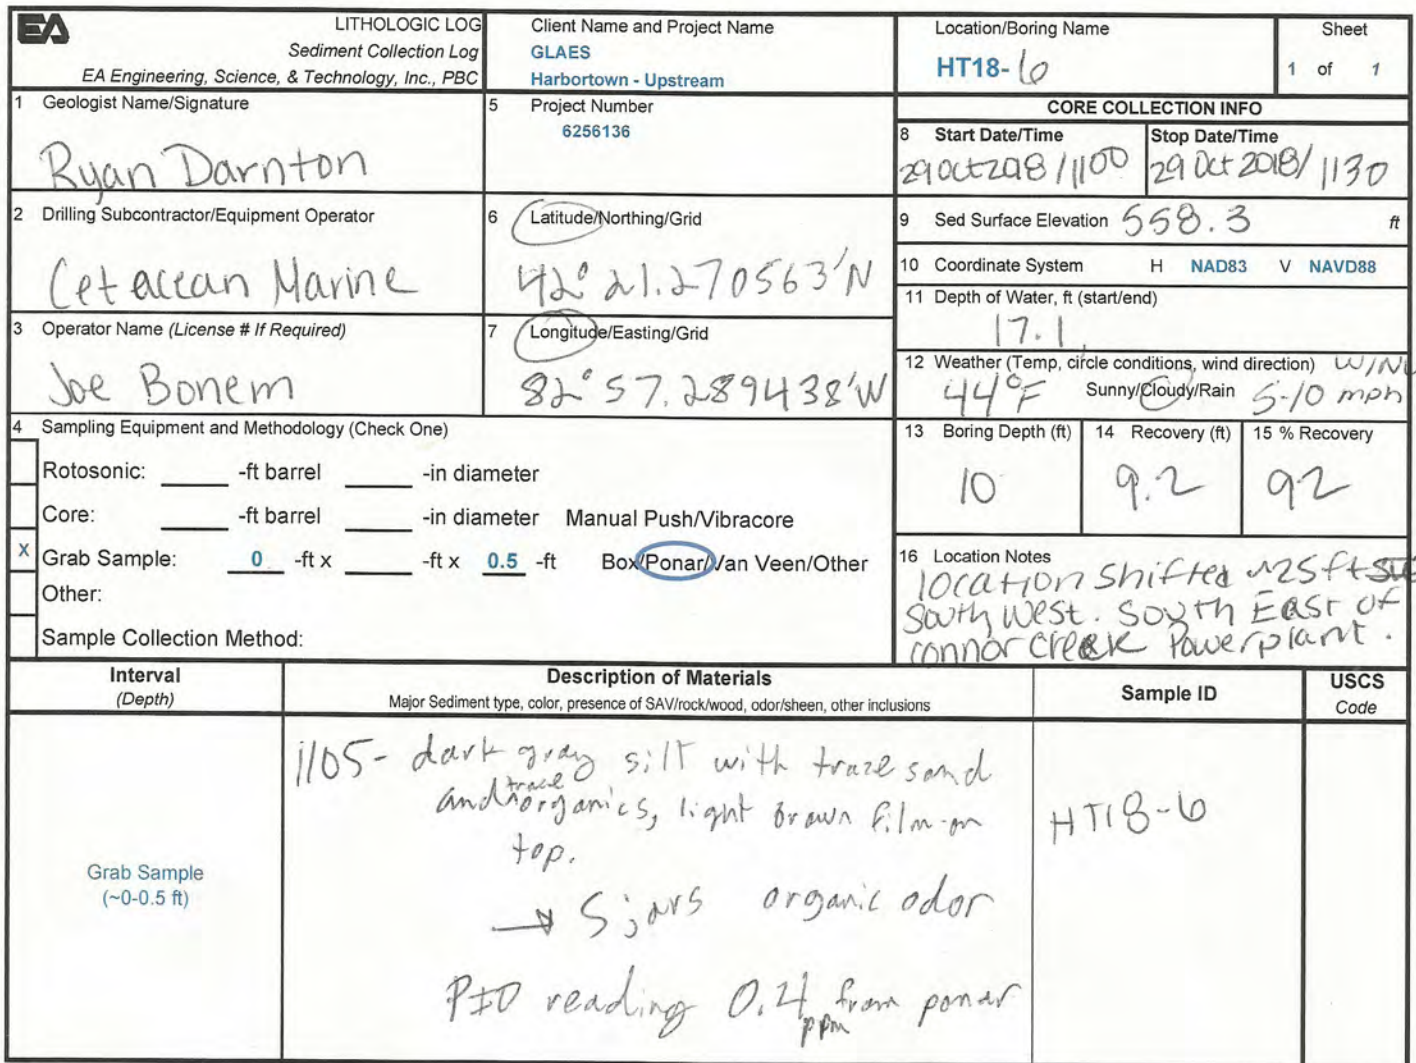 EA
LITHOLOGIC LOG
Sediment Collection Log
EA Engineering, Science, & Technology, Inc., PBC
Client Name and Project Name
GLAES
Harbortown - Upstream
Location/Boring Name
HT18-6
Sheet
1 of 1
1 Geologist Name/Signature
Ryan Darnton
5 Project Number
6256136
CORE COLLECTION INFO
8 Start Date/Time
29 Oct 2018 / 1100
Stop Date/Time
29 Oct 2018 / 1130
2 Drilling Subcontractor/Equipment Operator
Cetacean Marine
6 Latitude/Northing/Grid
42° 21.270563'N
9 Sed Surface Elevation 558.3 ft
10 Coordinate System H NAD83 V NAVD88
11 Depth of Water, ft (start/end)
17.1
3 Operator Name (License # If Required)
Joe Bonem
7 Longitude/Easting/Grid
82° 57.289438'W
12 Weather (Temp, circle conditions, wind direction)
44°F Sunny/Cloudy/Rain 5-10 mph
4 Sampling Equipment and Methodology (Check One)
Rotosonic: -ft barrel -in diameter
Core: -ft barrel -in diameter Manual Push/Vibracore
X Grab Sample: 0 -ft x -ft x 0.5 -ft Box/Ponar/Van Veen/Other
Other:
Sample Collection Method:
13 Boring Depth (ft)
10
14 Recovery (ft)
9.2
15 % Recovery
92
16 Location Notes
location shifted ~25 ft
South West. South East of
Connor Creek Powerplant.
Interval
(Depth)
Description of Materials
Major Sediment type, color, presence of SAV/rock/wood, odor/sheen, other inclusions
Sample ID
USCS
Code
Grab Sample
(~0-0.5 ft)
1105- dark gray silt with trace sand
and trace organics, light brown film on
top.
→ 5 jars organic odor
PID reading 0.4 ppm from ponar
HT18-6